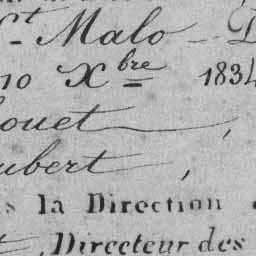 St Malo
10 Xbre 1834
ouet,
ubert,
s la Direction
Directeur des